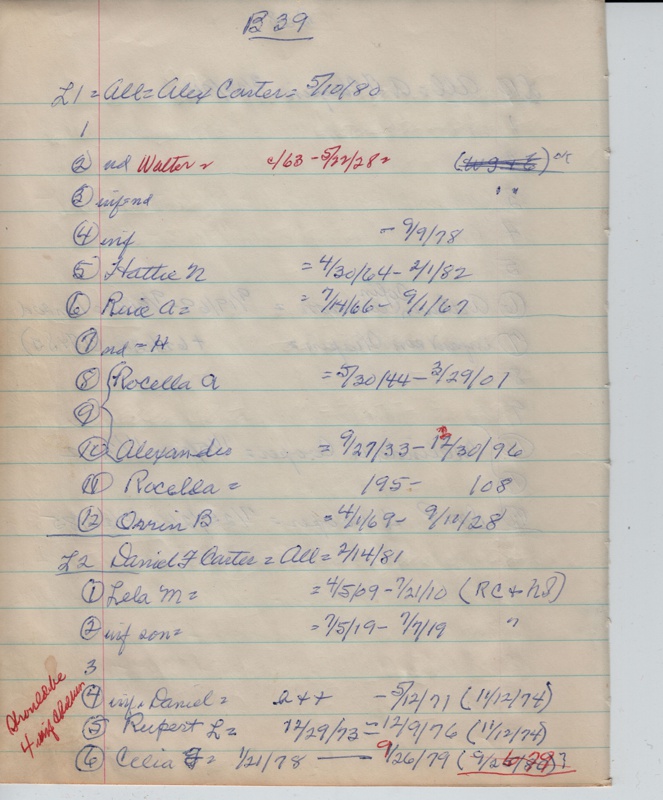 B 39
L1 = All = Alex Carter = 5/10/80
1
② nd Walter = c/63 - 5/22/28 = ok
③ inf = nd " "
④ inf - 9/9/78
⑤ Hattie N = 4/30/64 - 2/1/82
⑥ Rosie A = = 7/14/66 - 9/1/67
⑦ nd = H
⑧ Rocella A = 5/30/44 - 3/29/01
⑨
⑩ Alexander = 9/27/33 - 12/30/96
⑪ Rocella = 195 - 108
⑫ Orrin B = 4/1/69 - 9/12/28
L2 Daniel F Carter = All = 2/14/81
① Lela M = = 4/5/09 - 7/21/10 (RC + hS)
② inf son = = 7/5/19 - 7/7/19 "
3
④ inf. Daniel = - 5/12/71 (11/12/74)
⑤ Rupert L = 12/29/73 = 12/9/76 (11/12/74)
⑥ Celia = 1/21/78 — 9/26/79
Should be
4 inf children